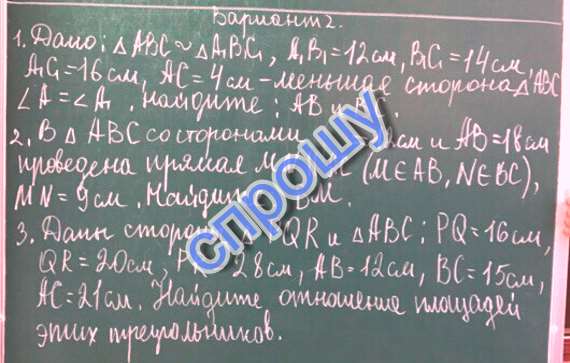 Вариант 2.
1. Дано: △ABC ~ △A₁B₁C₁, A₁B₁=12см, B₁C₁=14см,
A₁C₁=16см, AC=4см - меньшая сторона △ABC
∠A=∠A₁. Найдите: AB и
2. В △ ABC со сторонами см и AB=18см
проведена прямая (M∈AB, N∈BC),
MN=9см. BM.
3. Даны QR и △ABC: PQ=16см,
QR=20см, 28см, AB=12см, BC=15см,
AC=21см. Найдите отношение площадей
этих треугольников.
спрошу